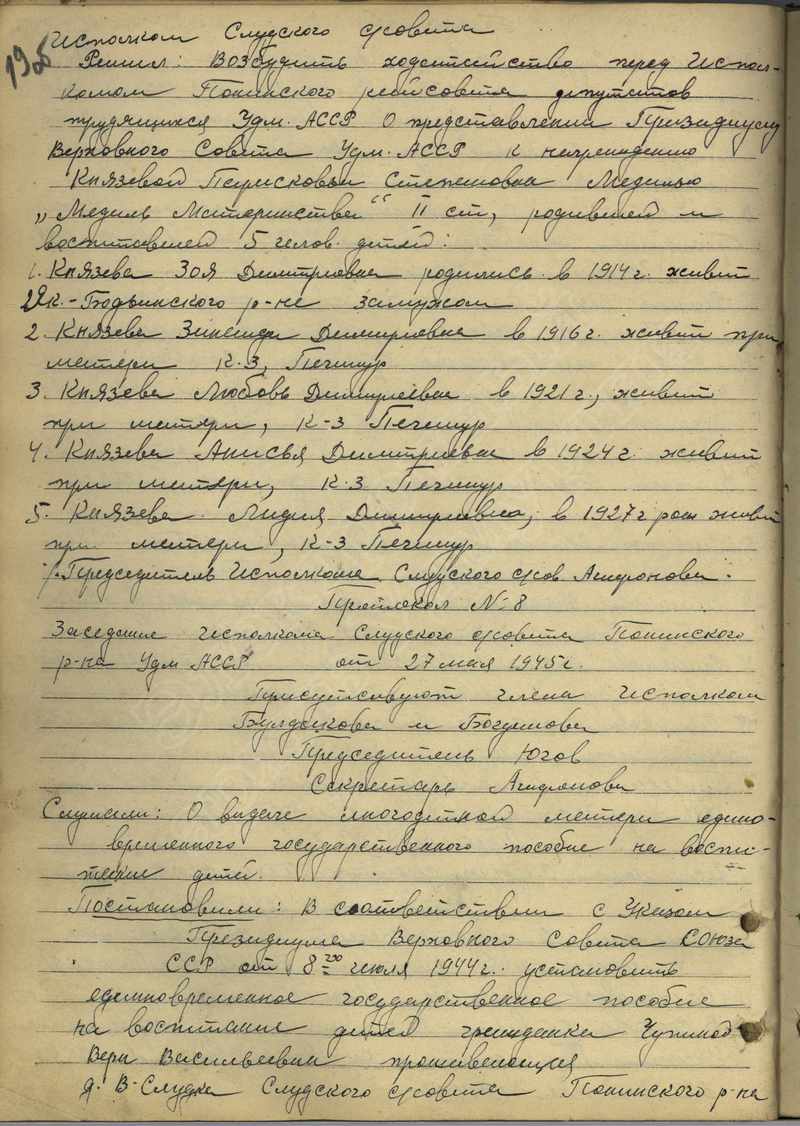 Исполком Слудского с/совета
Решил: Возбудить ходотайство перед Испол-
комом Понинского райсовета депутатов
трудящихся Удм. АССР О представлении Президиуму
Верховного Совета Удм. АССР к награждению
Князевой Парасковьи Степановна Медалью
„Медаль Материнства“ II ст, родившей и
воспитавшей 5 челов. детей:
1. Князева Зоя Дмитриевна родилась в 1914 г. живет
Як.-Бодьинского р-на замужем
2. Князева Зинаида Димитриевна в 1916 г. живет при
матери К-З, Печешур
3. Князева Любовь Димитриевна в 1921 г., живет
при матери, К-З Печешур
4. Князева Анисья Димтриевна в 1924 г. живет
при матери, К-З Печешур
5. Князева Лидия Димитриевна, в 1927 г рож живет
при матери, К-З Печешур
Председатель Исполкома Слудского с/сов Агафонова.
Протокол № 8
Заседание исполкома Слудского с/совета Понинского
р-на Удм АССР от 27 мая 1945 г.
Присутствуют члена исполком
Булдакова и Богданова
Председатель Югов
Секретарь Агафонова
Слушали: О выдаче многодетной матери едино-
временного государственного пособие на воспи-
тание детей.
Постановили: В соответствии с Указом
Президиума Верховного Совета Союза
ССР от 8го июля 1944 г. установить
единовременное государственное пособие
на воспитание детей гражданка
Вера Васильевна проживающая
д. В-Слудка Слудского с/совета Понинского р-на